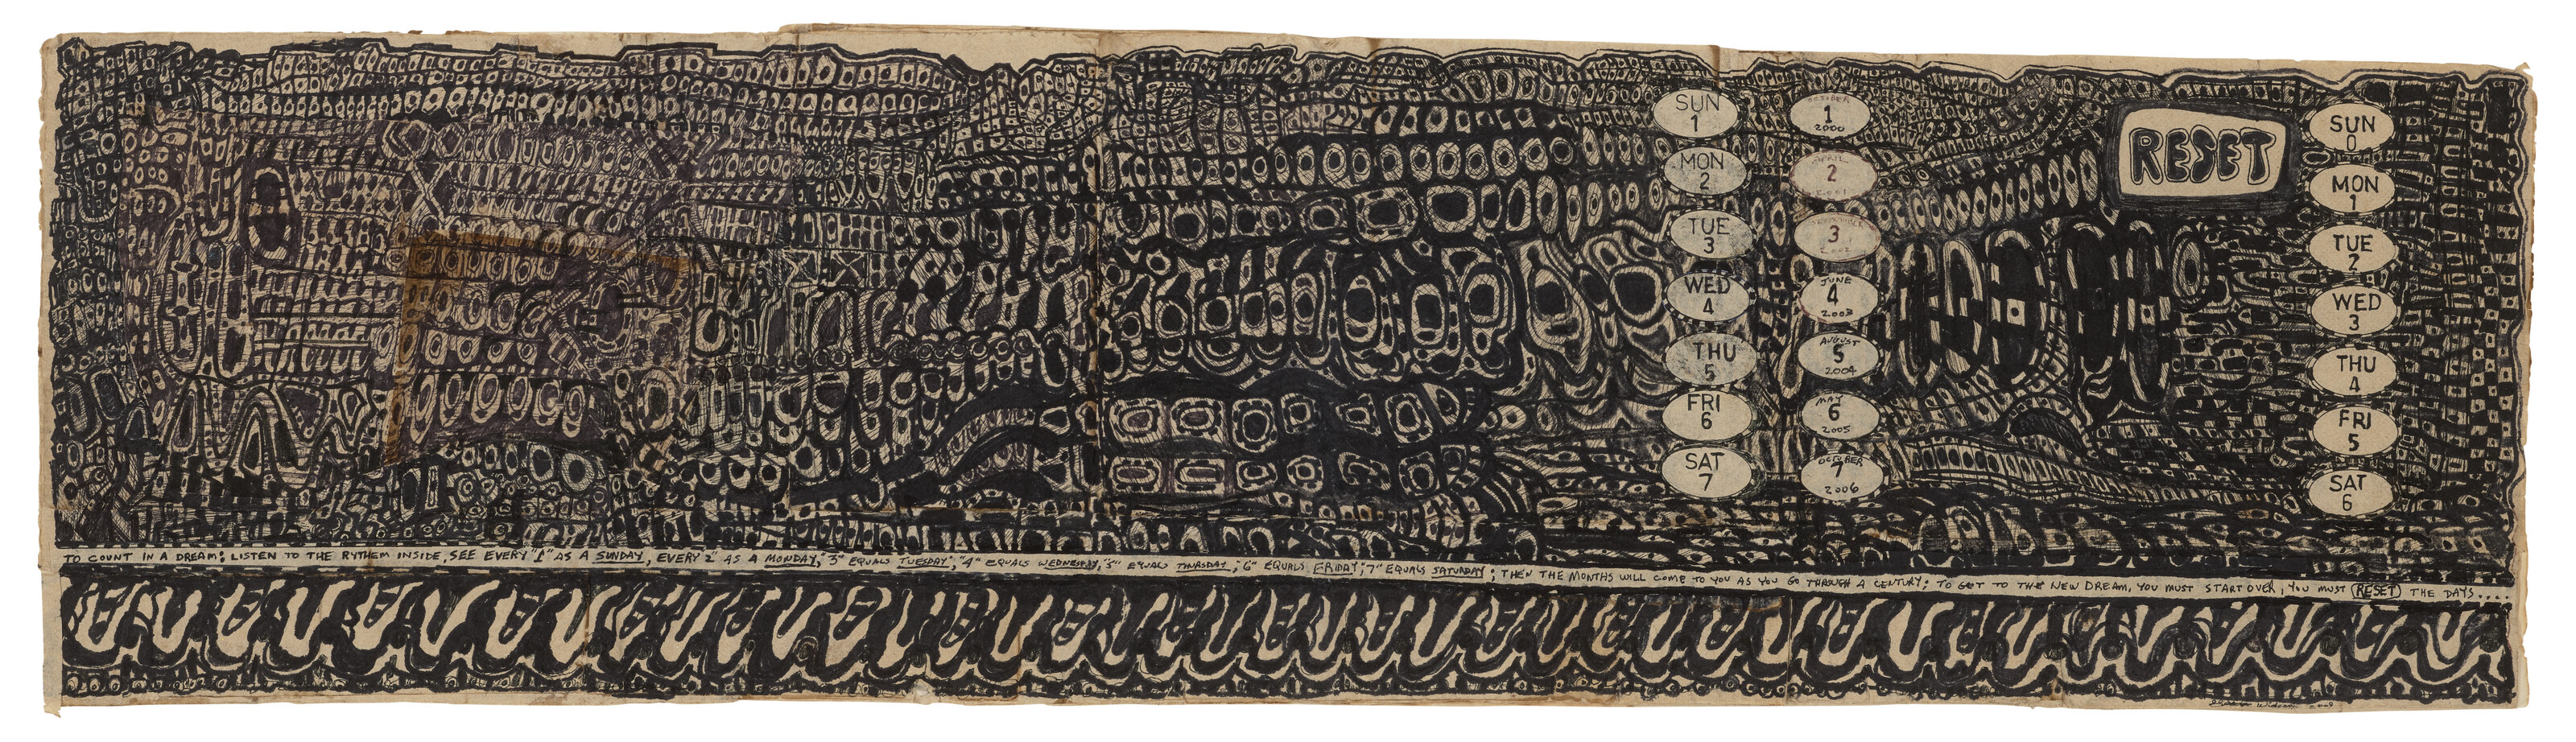 SUN
1
MON
2
TUE
3
WED
4
THU
5
FRI
6
SAT
7
OCTOBER
1
2000
APRIL
2
2001
3
2002
JUNE
4
2003
AUGUST
5
2004
MAY
6
2005
OCTOBER
7
2006
RESET
SUN
0
MON
1
TUE
2
WED
3
THU
4
FRI
5
SAT
6
TO COUNT IN A DREAM: LISTEN TO THE RYTHEM INSIDE, SEE EVERY "1" AS A SUNDAY, EVERY 2" AS A MONDAY, "3" EQUALS TUESDAY, "4" EQUALS WEDNESDAY, "5" EQUALS THURSDAY, "6" EQUALS FRIDAY, "7" EQUALS SATURDAY; THEN THE MONTHS WILL COME TO YOU AS YOU GO THROUGH A CENTURY; TO GET TO THE NEW DREAM, YOU MUST START OVER, YOU MUST (RESET) THE DAYS....